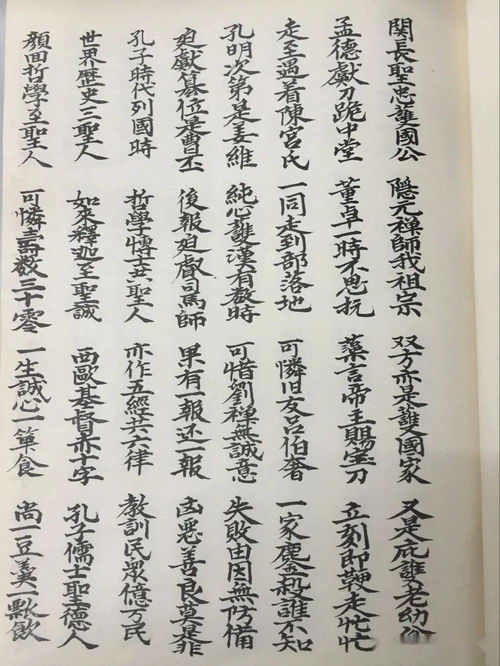 関長聖忠護國公 隱元禅師我祖宗 双方亦是護國家 又是庇護老幼
孟德獻刀跪中堂 董卓一時不思抗 藥言帝王賜宝刀 立刻即鞭走忙忙
走至遇着陳宮氏 一同走到部落地 可憐旧友呂伯奢 一家鏖殺誰不知
孔明次第是姜維 純心護漢有数時 可惜劉禅無誠意 失敗由因無防備
廹獻篡位是曹丕 後報廹司馬師 果有一報还一報 凶惡善良莫是非
孔子時代列國時 哲學博聖人 亦作五經共六律 教訓民眾億万民
世界歷史三聖人 如來釋迦至聖誠 西歐基督亦十字 孔子儒士聖德人
顏面哲學至聖人 可憐壽数三十零 一生誠心一箪食 尚一豆羹一瓢飲